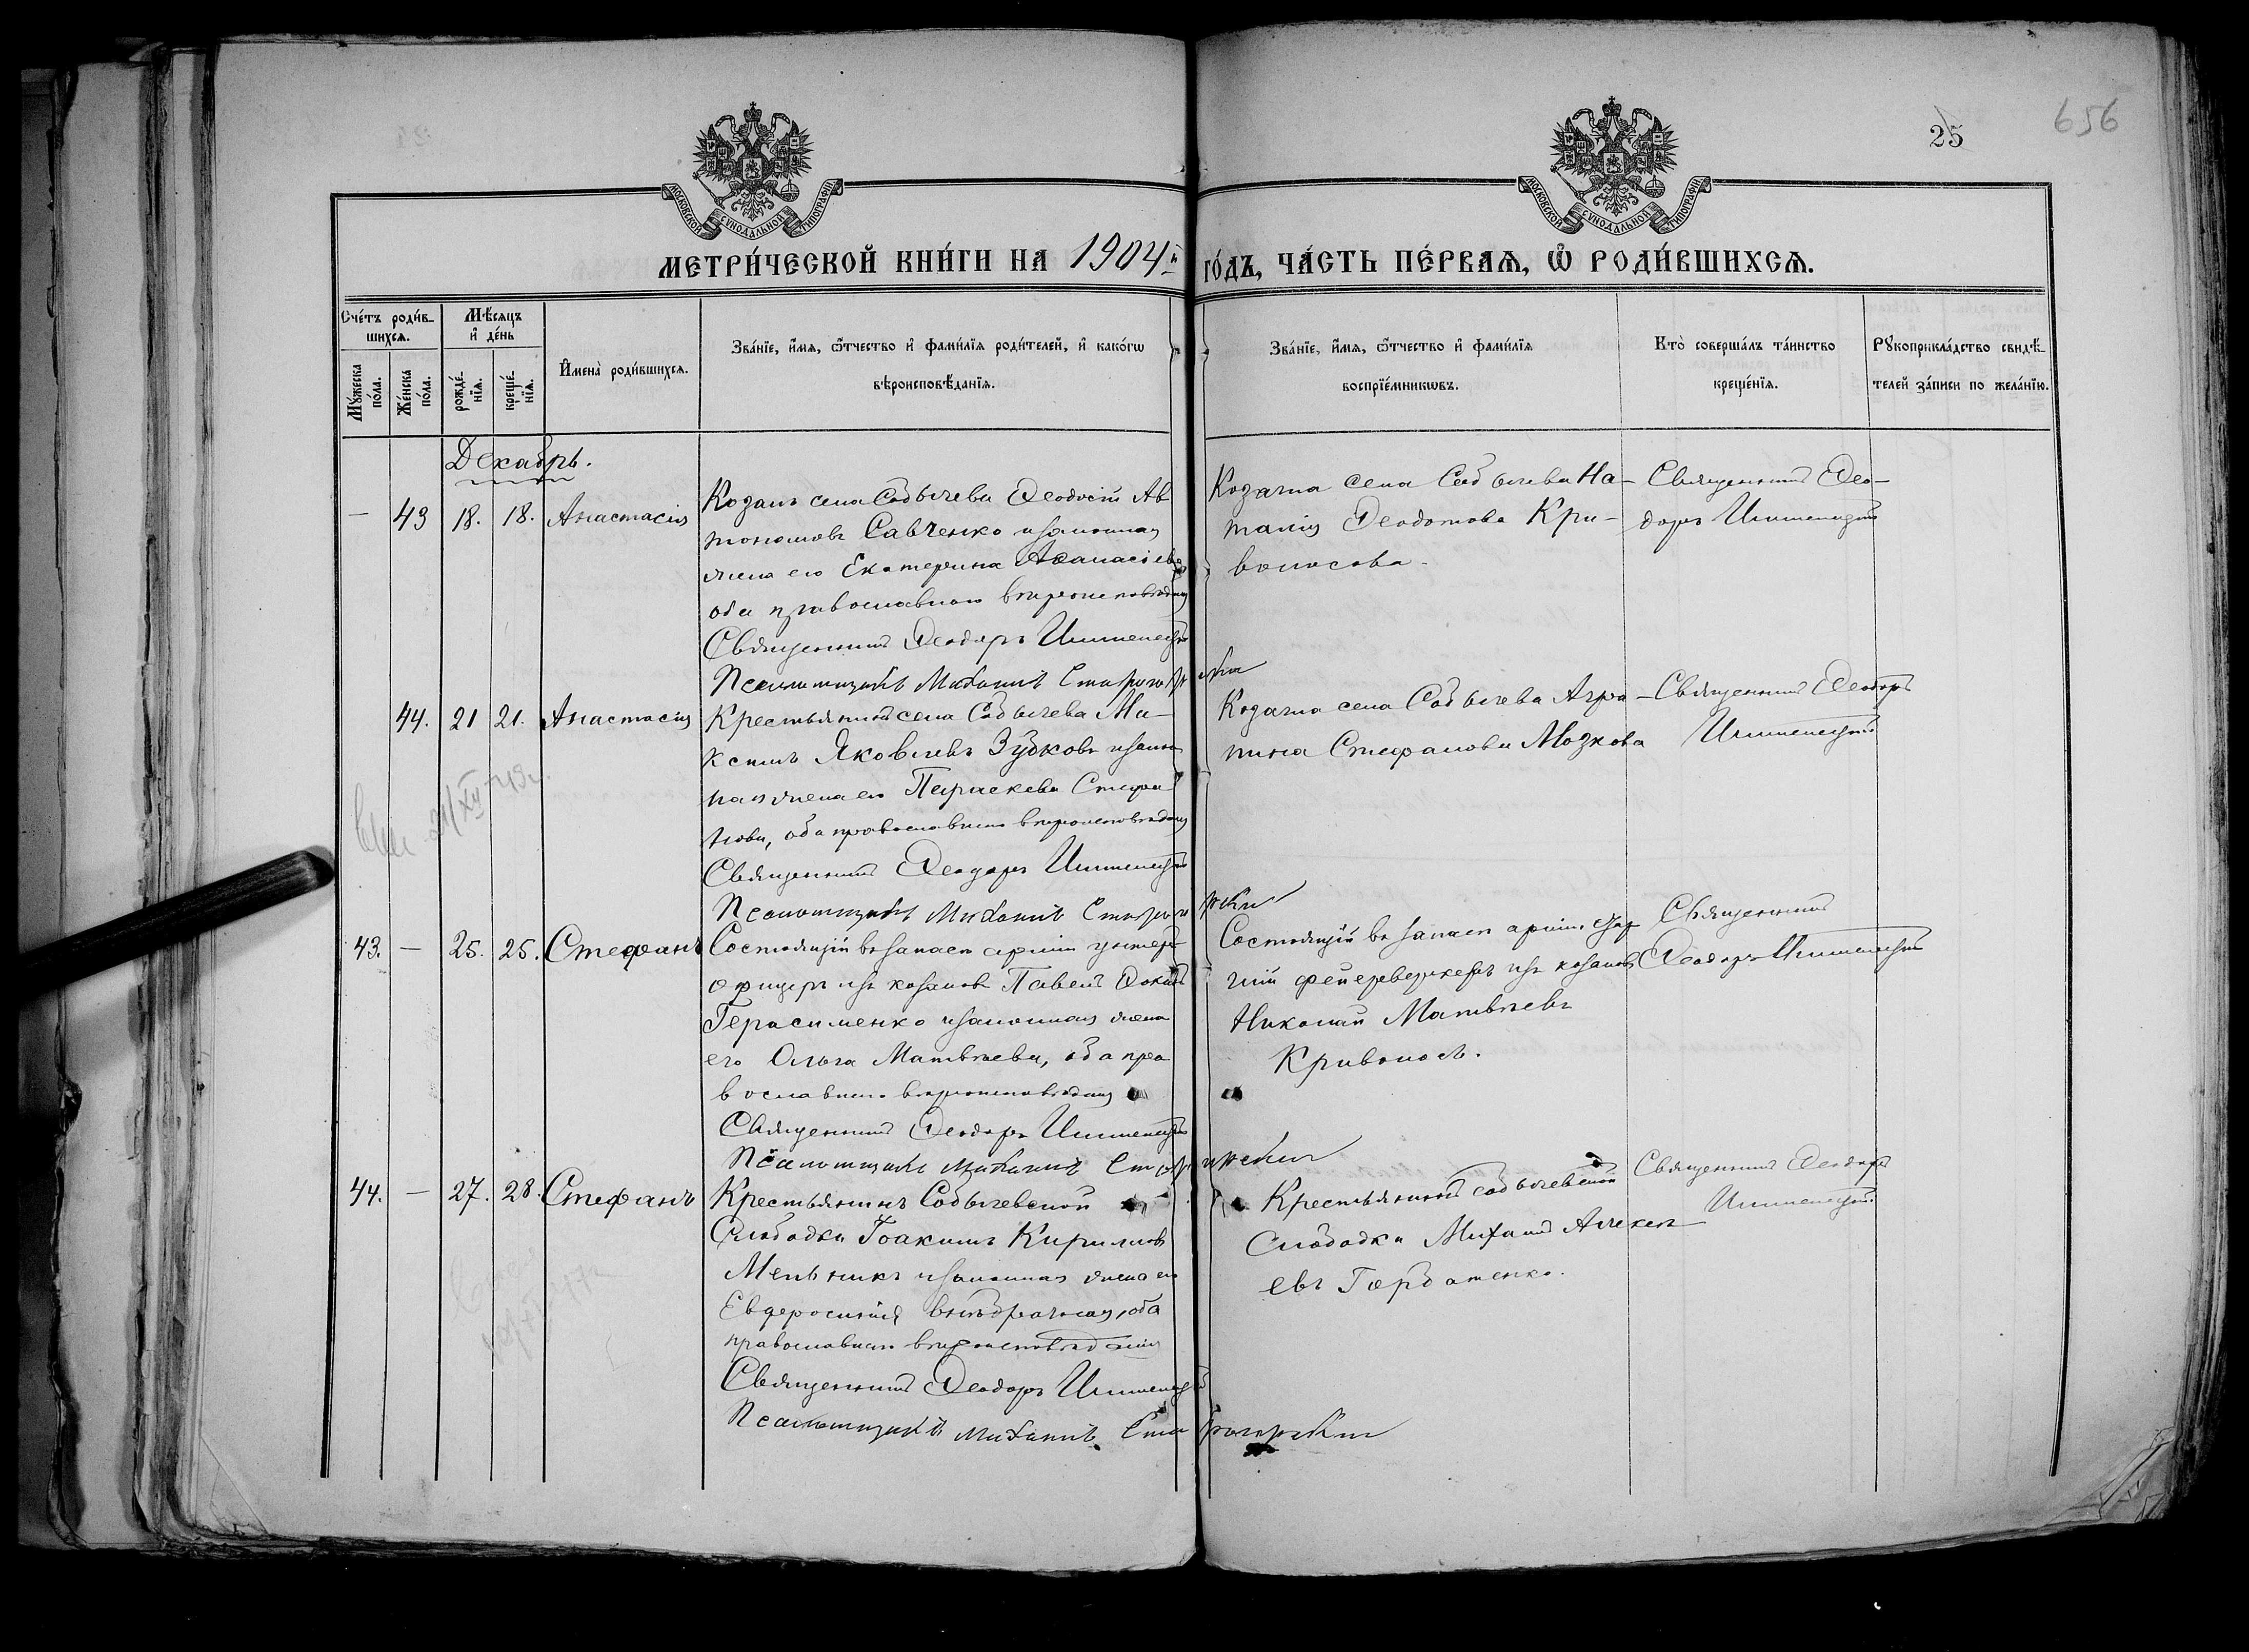 25
656
МОСКОВСКОЙ СѴНОДАЛЬНОЙ ТИПОГРАФІИ
МОСКОВСКОЙ СѴНОДАЛЬНОЙ ТИПОГРАФІИ
МЕТРИ́ЧЕСКОЙ КНИ́ГИ НА 1904й ГО́ДЪ, ЧА́СТЬ ПЕ́РВАЯ, Ѿ РОДИ́ВШИХСЯ.
Сче́тъ роди́в-
шихся.
Му́жеска по́ла.
Же́нска по́ла.
Мѣ́сяцъ и де́нь
рожде́-нія.
креще́-нія.
Имена̀ роди́вшихся.
Зва́ніе, и́мя, о́тчество и фами́лія роди́телей, и како́гѡ
вѣроисповѣ́данія.
Зва́ніе, и́мя, о́тчество и фами́лія
воспріе́мникѡвъ.
Кто̀ соверша́лъ та́инство
креще́нія.
Рꙋкоприкла́дство свидѣ́-
телей за́писи по жела́нію.
Декабрь.
— 43 18. 18. Анастасія
Козакъ села Собычева Ѳеодосій Ав
тономовъ Савченко и законная
жена его Екатерина Аѳанасіева
оба православнаго вѣроисповѣданія
Священникъ Ѳеодоръ
Псаломщикъ Михаилъ Старогорскій
Козачка села Собычева На-
талія Ѳеодотова Кри-
воносова.
Священникъ Ѳео-
доръ
44. 21 21. Анастасія
Крестьянинъ села Собычева Ма-
ксимъ Яковлевъ Зубковъ и закон
ная жена его Параскева Стефа
нова, оба православнаго вѣроисповѣданія
Священникъ Ѳеодоръ
Псаломщикъ Михаилъ Старогорскій
Козачка села Собычева Агри-
пина Стефанова Мозкова
Священникъ Ѳеодоръ
43. — 25. 25. Стефанъ
Состоящій въ запасѣ арміи унтеръ
офицеръ изъ козаковъ Павелъ
Герасименко и законная жена
его Ольга Матвѣева, оба пра
вославнаго вѣроисповѣданія
Священникъ Ѳеодоръ
Псаломщикъ Михаилъ Старогорскій
Состоящій въ запасѣ арміи
фейерверкеръ изъ козаковъ
Николай Матвѣевъ
Кривоносъ.
Священникъ
Ѳеодоръ
44. — 27. 28. Стефанъ
Крестьянинъ Собычевской
Слободки Іоакимъ Кириловъ
Мельникъ и законная жена его
Евфросинія оба
православнаго вѣроисповѣданія
Священникъ Ѳеодоръ
Псаломщикъ Михаилъ Старогорскій
Крестьянинъ Собычевской
Слободки Михаилъ Алексѣ-
евъ Горбатенко.
Священникъ Ѳеодоръ